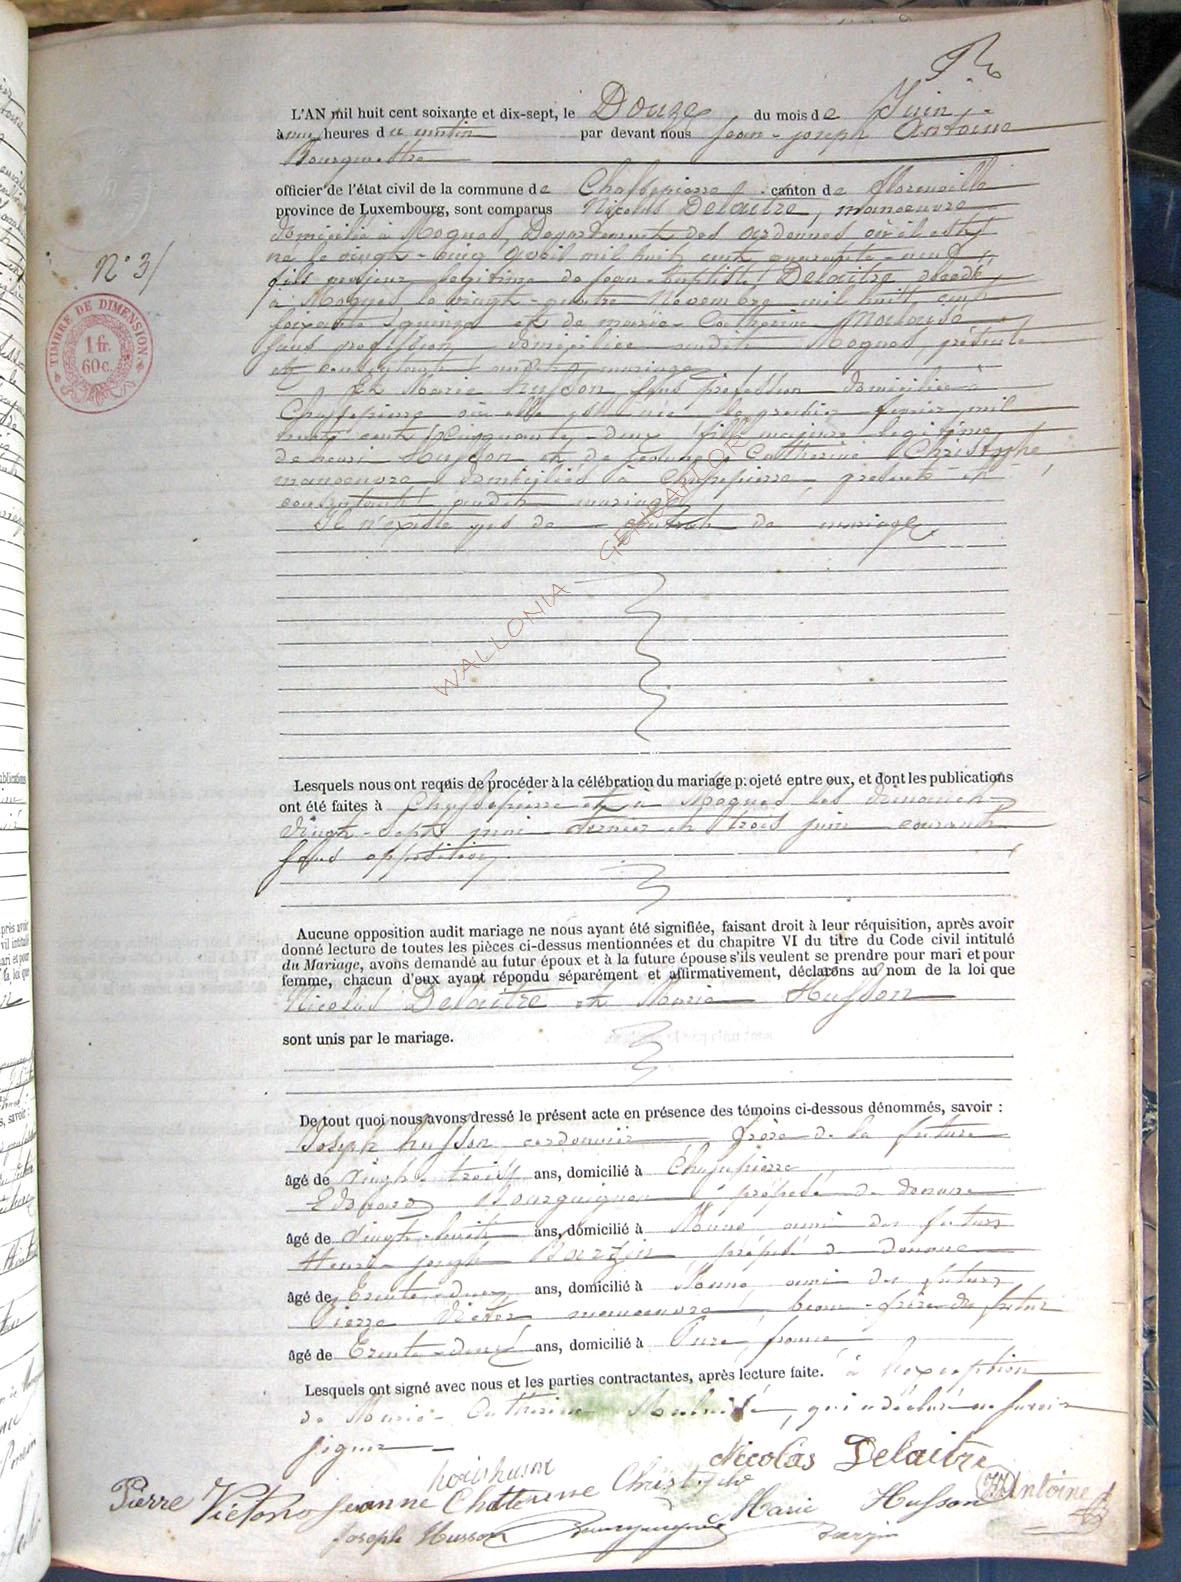 L'AN mil huit cent soixante et dix-sept, le Douze du mois de Juin
à heures du matin par devant nous Jean-Joseph Antoine
Bourgmestre
officier de l'état civil de la commune de Chassepierre canton de Florenville
province de Luxembourg, sont comparus Nicolas Delaitre, manoeuvre
domicilié à Mognes, Departement des Ardennes où il est
né le vingt-cinq avril mil huit cent quarante-neuf,
fils majeur légitime de Jean-Baptiste Delaitre décédé
à Mognes le vingt-quatre Novembre mil huit cent
soixante quinze et de marie-Catherine
sans profession domiciliée audit Mognes, présente
et consentante audit mariage
Et Marie husson sans profession domiciliée à
Chassepierre où elle est née le premier fevrier mil
huit cent cinquante-deux fille majeure légitime
de henri Husson et de jeanne Catherine Christophe,
manoeuvre domiciliés à Chassepierre, présents et
consentants audit mariage
Il n'existe pas de contrat de mariage
N° 3
TIMBRE DE DIMENSION
1 fr.
60 c.
WALLONIA GENSALLOR
Lesquels nous ont requis de procéder à la célébration du mariage projeté entre eux, et dont les publications
ont été faites à Chassepierre et à Mognes les dimanch
vingt-sept mai dernier et trois juin courant
sans opposition
Aucune opposition audit mariage ne nous ayant été signifiée, faisant droit à leur réquisition, après avoir
donné lecture de toutes les pièces ci-dessus mentionnées et du chapitre VI du titre du Code civil intitulé
du Mariage, avons demandé au futur époux et à la future épouse s'ils veulent se prendre pour mari et pour
femme, chacun d'eux ayant répondu séparément et affirmativement, déclarons au nom de la loi que
Nicolas Delaitre et Marie Husson
sont unis par le mariage.
De tout quoi nous avons dressé le présent acte en présence des témoins ci-dessous dénommés, savoir :
Joseph husson cordonnier, frère de la future
âgé de vingt-trois ans, domicilié à Chassepierre
Edouard Bourguignon préposé de douane
âgé de vingt-huit ans, domicilié à Muno, ami des futurs
Henri-joseph préposé de douane
âgé de Trente-deux ans, domicilié à Muno, ami des futurs
Pierre Victor manoeuvre, beau-frère du futur
âgé de Trente-deux ans, domicilié à Pure, france
Lesquels ont signé avec nous et les parties contractantes, après lecture faite. à l'exception
de Marie-Catherine, qui a déclaré ne savoir
signer
Nicolas Delaitre
husson
Pierre Victor Jeanne Chatterinne Christophe Marie Husson Antoine
Joseph Husson Bourguignon